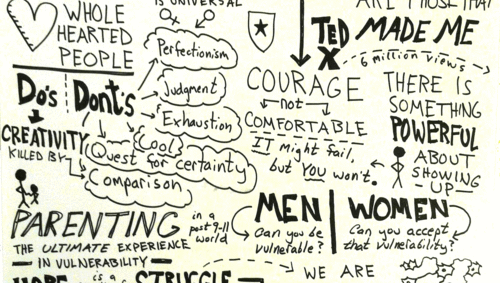 WHOLE
HEARTED
PEOPLE
IS UNIVERSAL
ARE THOSE THAT
TED MADE ME
X
6 million views
Do's
Dont's
Perfectionism
Judgment
Exhaustion
Cool
Quest for certainty
Comparison
CREATIVITY
KILLED BY
COURAGE
not
COMFORTABLE
IT might fail,
but YOU won't.
THERE IS
SOMETHING
POWERFUL
ABOUT
SHOWING
UP
PARENTING
in a
post 9-11
world
THE ULTIMATE EXPERIENCE
IN VULNERABILITY
MEN
Can you be
vulnerable?
WOMEN
Can you accept
that vulnerability?
HOPE is a STRUGGLE
WE ARE